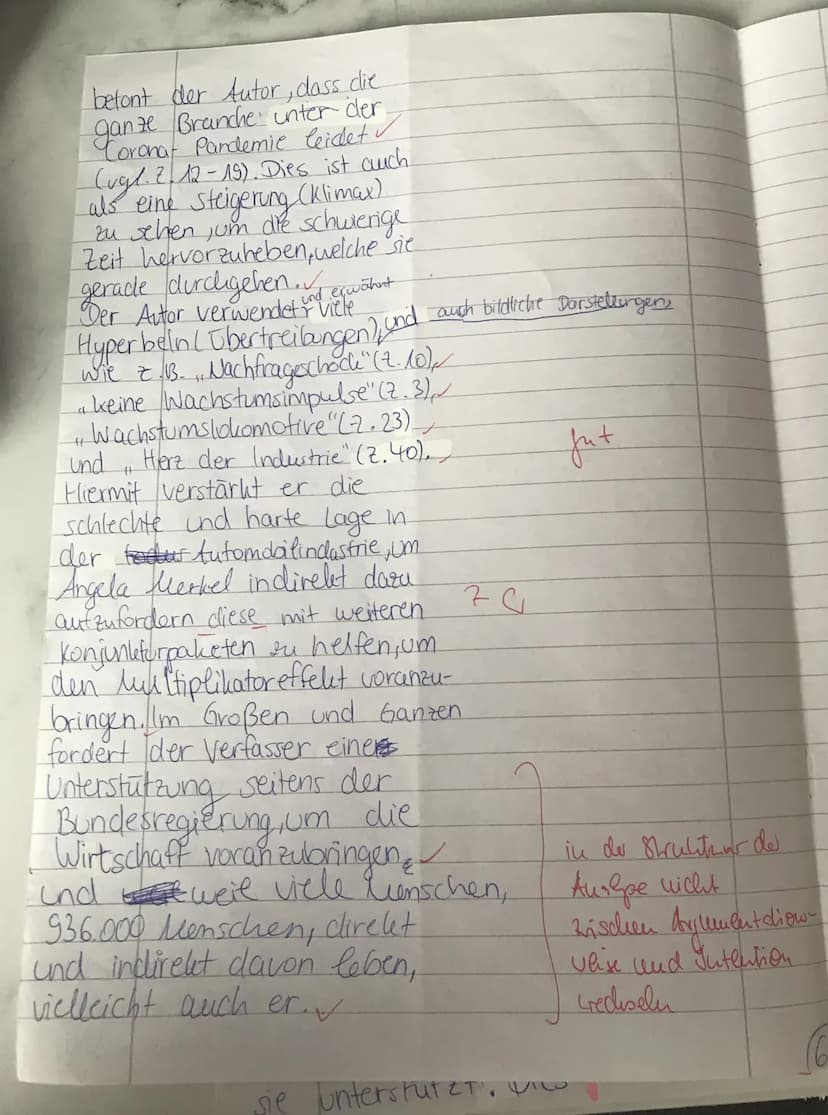 betont der Autor, dass die
ganze Branche unter der
Corona- Pandemie leidet
(vgl. Z. 12-19). Dies ist auch
als eine Steigerung (Klimax)
zu sehen, um die schwierige
Zeit hervorzuheben, welche sie
gerade durchgehen.
und erwähnt
Der Autor verwendet viele
Hyperbeln (Übertreibungen), und auch bildliche Darstellungen,
wie z.B. „Nachfrageschock" (Z. 10),
„keine Wachstumsimpulse" (Z. 3),
„Wachstumslokomotive" (Z. 23)
und „Herz der Industrie" (Z. 40).
gut
Hiermit verstärkt er die
schlechte und harte Lage in
der Automobilindustrie, um
Angela Merkel indirekt dazu
aufzufordern diese mit weiteren
Z
Konjunkturpaketen zu helfen, um
den Multiplikatoreffekt voranzu-
bringen. Im Großen und Ganzen
fordert der Verfasser eine
Unterstützung seitens der
Bundesregierung, um die
Wirtschaft voranzubringen,
und weil viele Menschen,
936.000 Menschen, direkt
und indirekt davon leben,
vielleicht auch er.
in der Struktur der
nicht
zwischen Argumentations-
weise und Intention
wechseln
6
sie unterstützt.